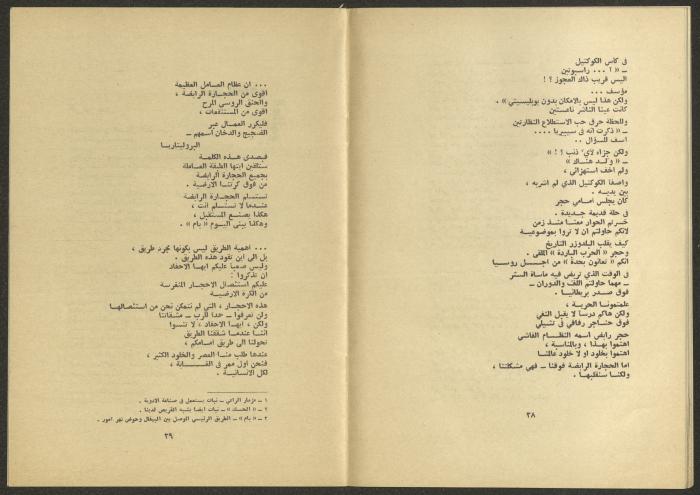 في كأس الكوكتيل
ــ « آ ... راسبوتين
اليس قريب ذاك العجوز ؟ !
مؤسف ...
ولكن هذا ليس بالامكان بدون بوبليسيتي » .
كانت عينا الناشر ناعستين
وللحظة حرق حب الاستطلاع النظارتين
ــ « ذكرت انه في سيبيريا ....
اسف للسؤال ..
ولكن جزاء لأي ذنب ؟ ! »
ــ « ولد هناك »
ولم اخف استهزائي ،
واصفا الكوكتيل الذي لم اشربه ،
بين يديه .
كان يجلس امامي حجر
في حلة قديمة جديدة .
خسرتم الحوار معنا منذ زمن
لانكم حاولتم ان لا تروا بموضوعية
كيف يقلب البلدوزر التاريخ
وحجر « الحرب الباردة » الملقى .
انكم « تعانون بحدة » من اجل روسيا
في الوقت الذي تربض فيه مأساة الستر
ــ مهما حاولتم اللف والدوران ــ
فوق صدر بريطانيا .
علمتمونا الحرية ،
ولكن هاكم درسا لا يقبل النفي
فوق حناجر رفاقي في تشيلي
حجر رابض اسمه النظام الفاشي
اهتموا بهذا ، وبالمناسبة ،
اهتموا بخلود او لا خلود عالمنا
اما الحجارة الرابضة فوقنا ــ فهي مشكلتنا ،
ولكننا سنقلبها .
٣٨
... ان عظام العامل العظيمة
اقوى من الحجارة الرابضة ،
والحنق الروسي المرح
اقوى من المستنقعات ،
فليكرر العمال عبر
الضجيج والدخان اسمهم ــ
البروليتاريا
فبصدى هذه الكلمة
ستلقين ايتها الطبقة العاملة
بجميع الحجارة الرابضة
من فوق كرتنا الارضية .
تستسلم الحجارة الرابضة
عندما لا تستسلم انت ،
هكذا يصنع المستقبل ،
وهكذا يبنى اليوم « بام » .
... اهمية الطريق ليس بكونها مجرد طريق ،
بل الى اين تقود هذه الطريق .
وليس صعبا عليكم ايها الاحفاد
ان تذكروا :
عليكم استئصال الاحجار المنغرسة
من الكرة الارضية
هذه الاحجار ، التي لم نتمكن نحن من استئصالها
ولن تعرفوا ــ حمدا للرب ــ مشقاتنا
ولكن ، ايها الاحفاد ، لا تنسوا
اننا عندما شققنا الطريق
تحولنا الى طريق امامكم ،
عندها طلب منا العصر والخلود الكثير ،
فنحن اول ممر في الغابة ،
لكل الانسانية .
١ ــ مزمار الراعي ــ نبات يستعمل في صناعة الادوية .
٢ ــ « الحسك » ــ نبات ايضا يشبه القريص لدينا .
٣ ــ « بام » ــ الطريق الرئيسي الموصل بين البيغال وحوض نهر امور .
٣٩